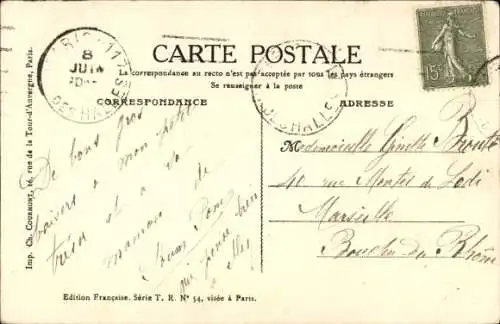 CARTE POSTALE
La correspondance au recto n'est pas acceptée par tous les pays étrangers
Se renseigner à la poste
CORRESPONDANCE
ADRESSE
De bons gros
baisers a mon petit
trésor et a sa
maman de
qui pense bien
a elles
Mademoiselle Ginette
40 rue Montée de Lodi
Marseille
Bouches du Rhône
8
JUIN
DES HALLES
DES HALLES
15
Imp. Ch. Courmont, 16, rue de la Tour-d'Auvergne, Paris.
Edition Française. Série T. R. N° 54, visée à Paris.